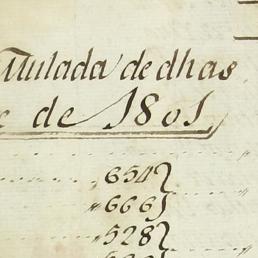 Mulada de dhas
e de 1801
654
666
528